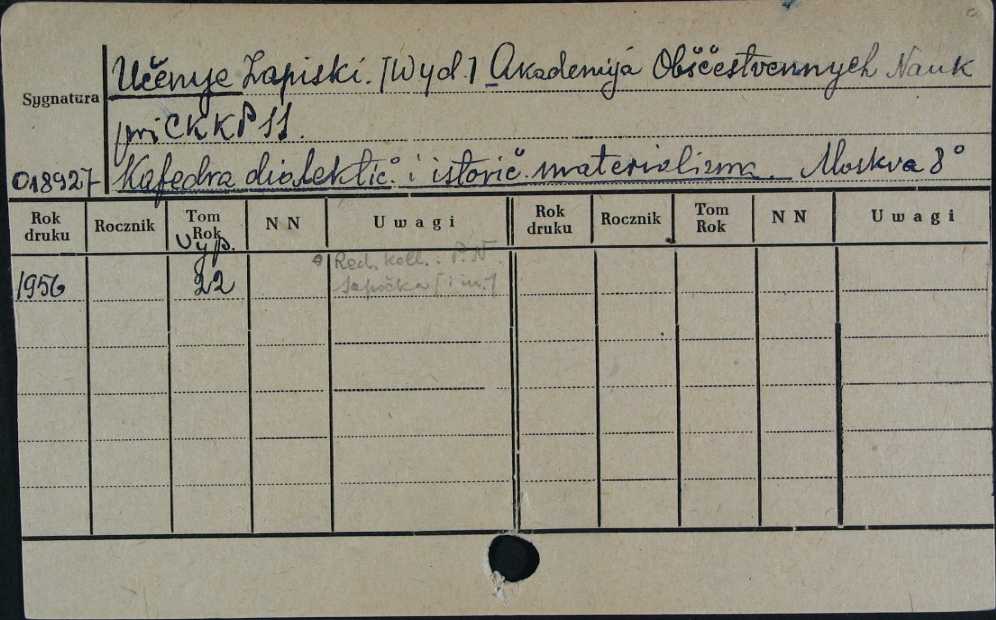 Učenye Zapiski. [Wyd.] Akademija Obščestvennych Nauk
Sygnatura
pri CK KPSS.
018927 Kafedra dialektič. i istorič. materializma. Moskva 8°
Rok druku Rocznik Tom Rok NN Uwagi Rok druku Rocznik Tom Rok NN Uwagi
Vyp.
Red. koll.: P. N.
1956 22 [i in.]